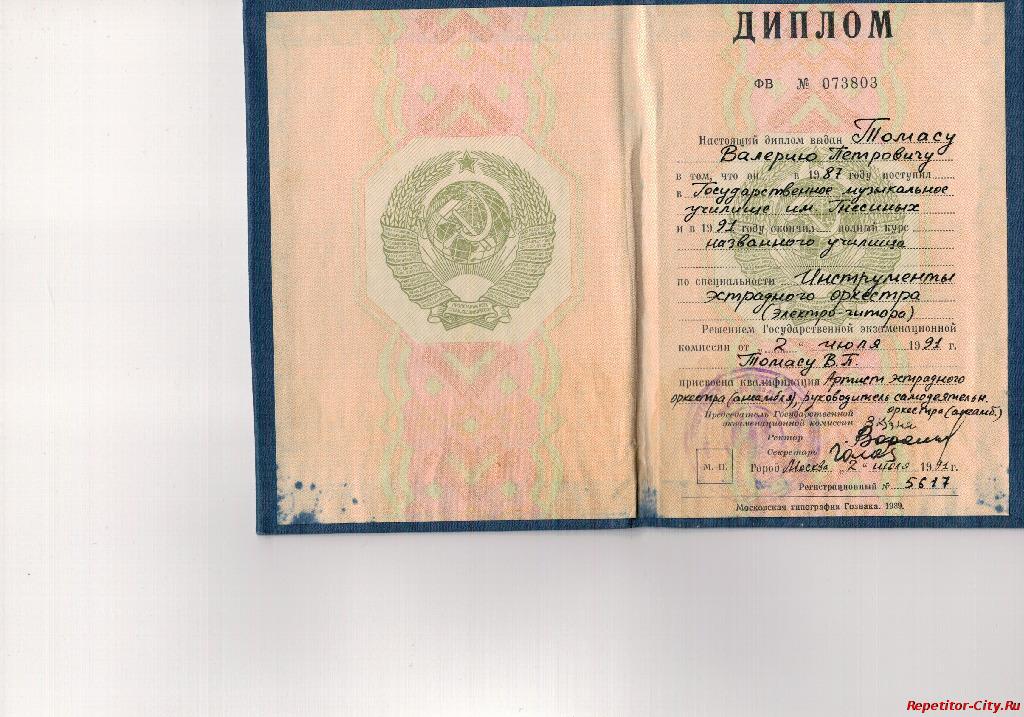 ДИПЛОМ
ФВ № 073803
Настоящий диплом выдан Томасу
Валерию Петровичу
в том, что он в 1987 году поступил
в Государственное музыкальное
училище им. Гнесиных
и в 1991 году окончил полный курс
названного училища
по специальности Инструменты
эстрадного оркестра
(Электро-гитара)
Решением Государственной экзаменационной
комиссии от „2“ июля 1991 г.
Томасу В.П.
присвоена квалификация Артист эстрадного
оркестра (ансамбля), руководитель самодеятельн.
оркестра (ансамб.)
Председатель Государственной
экзаменационной комиссии
Ректор
Секретарь
М. П.
Город Москва „2“ июля 1991 г.
Регистрационный № 5617
Московская типография Гознака. 1989.
Repetitor-City.Ru